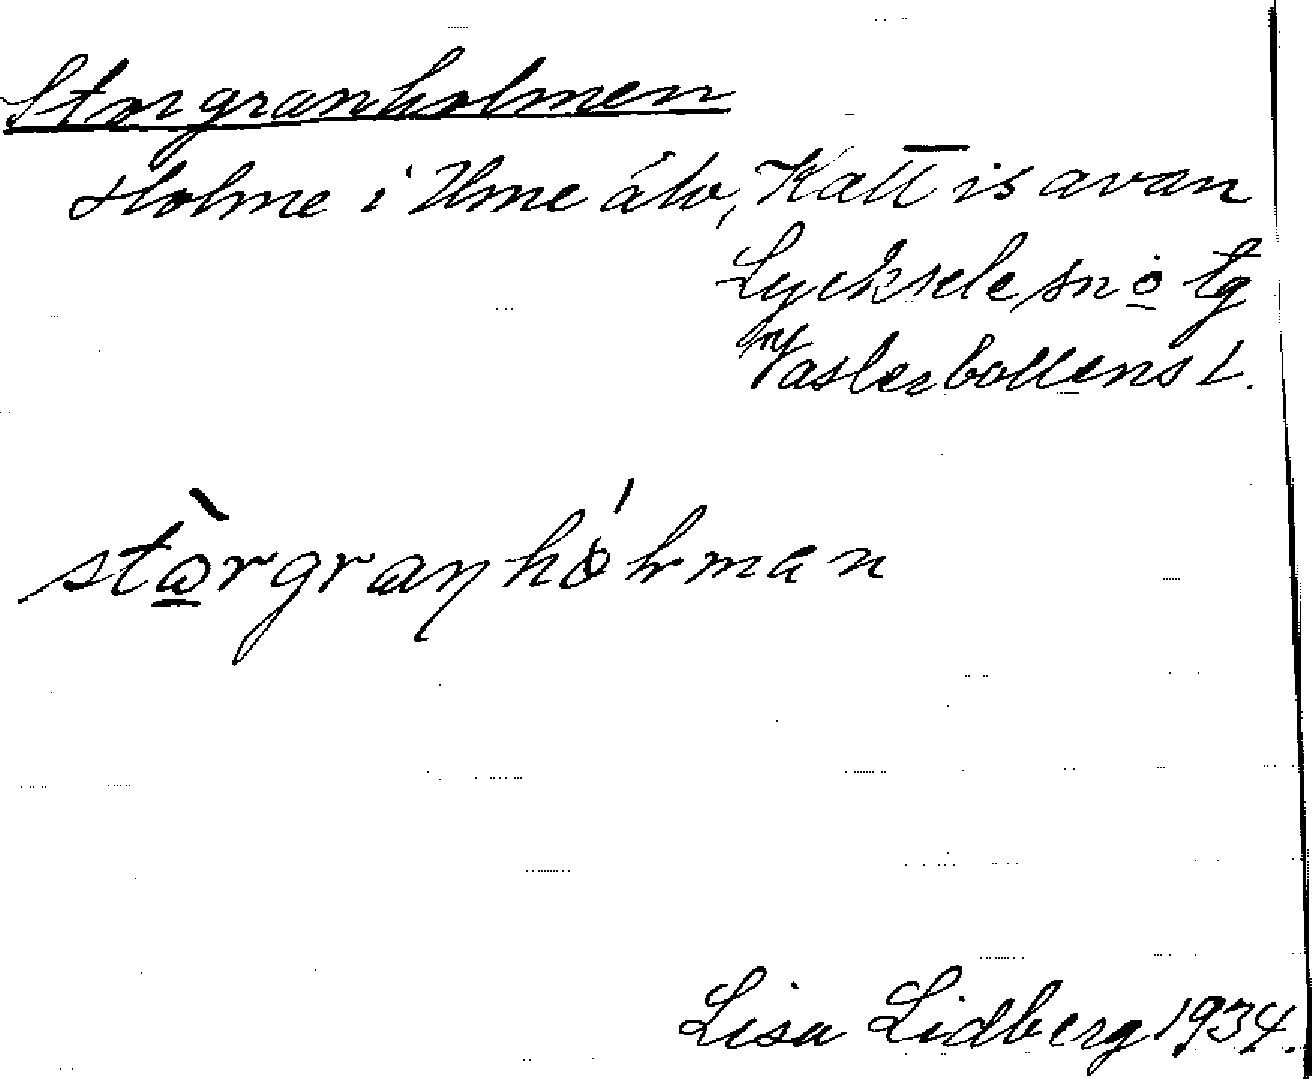 Storgranholmen
Holme i Ume älv, Kattisavan
Lycksele sn o tg
Västerbottens l.
stòrgranhólman
Lisa Lidberg 1934.